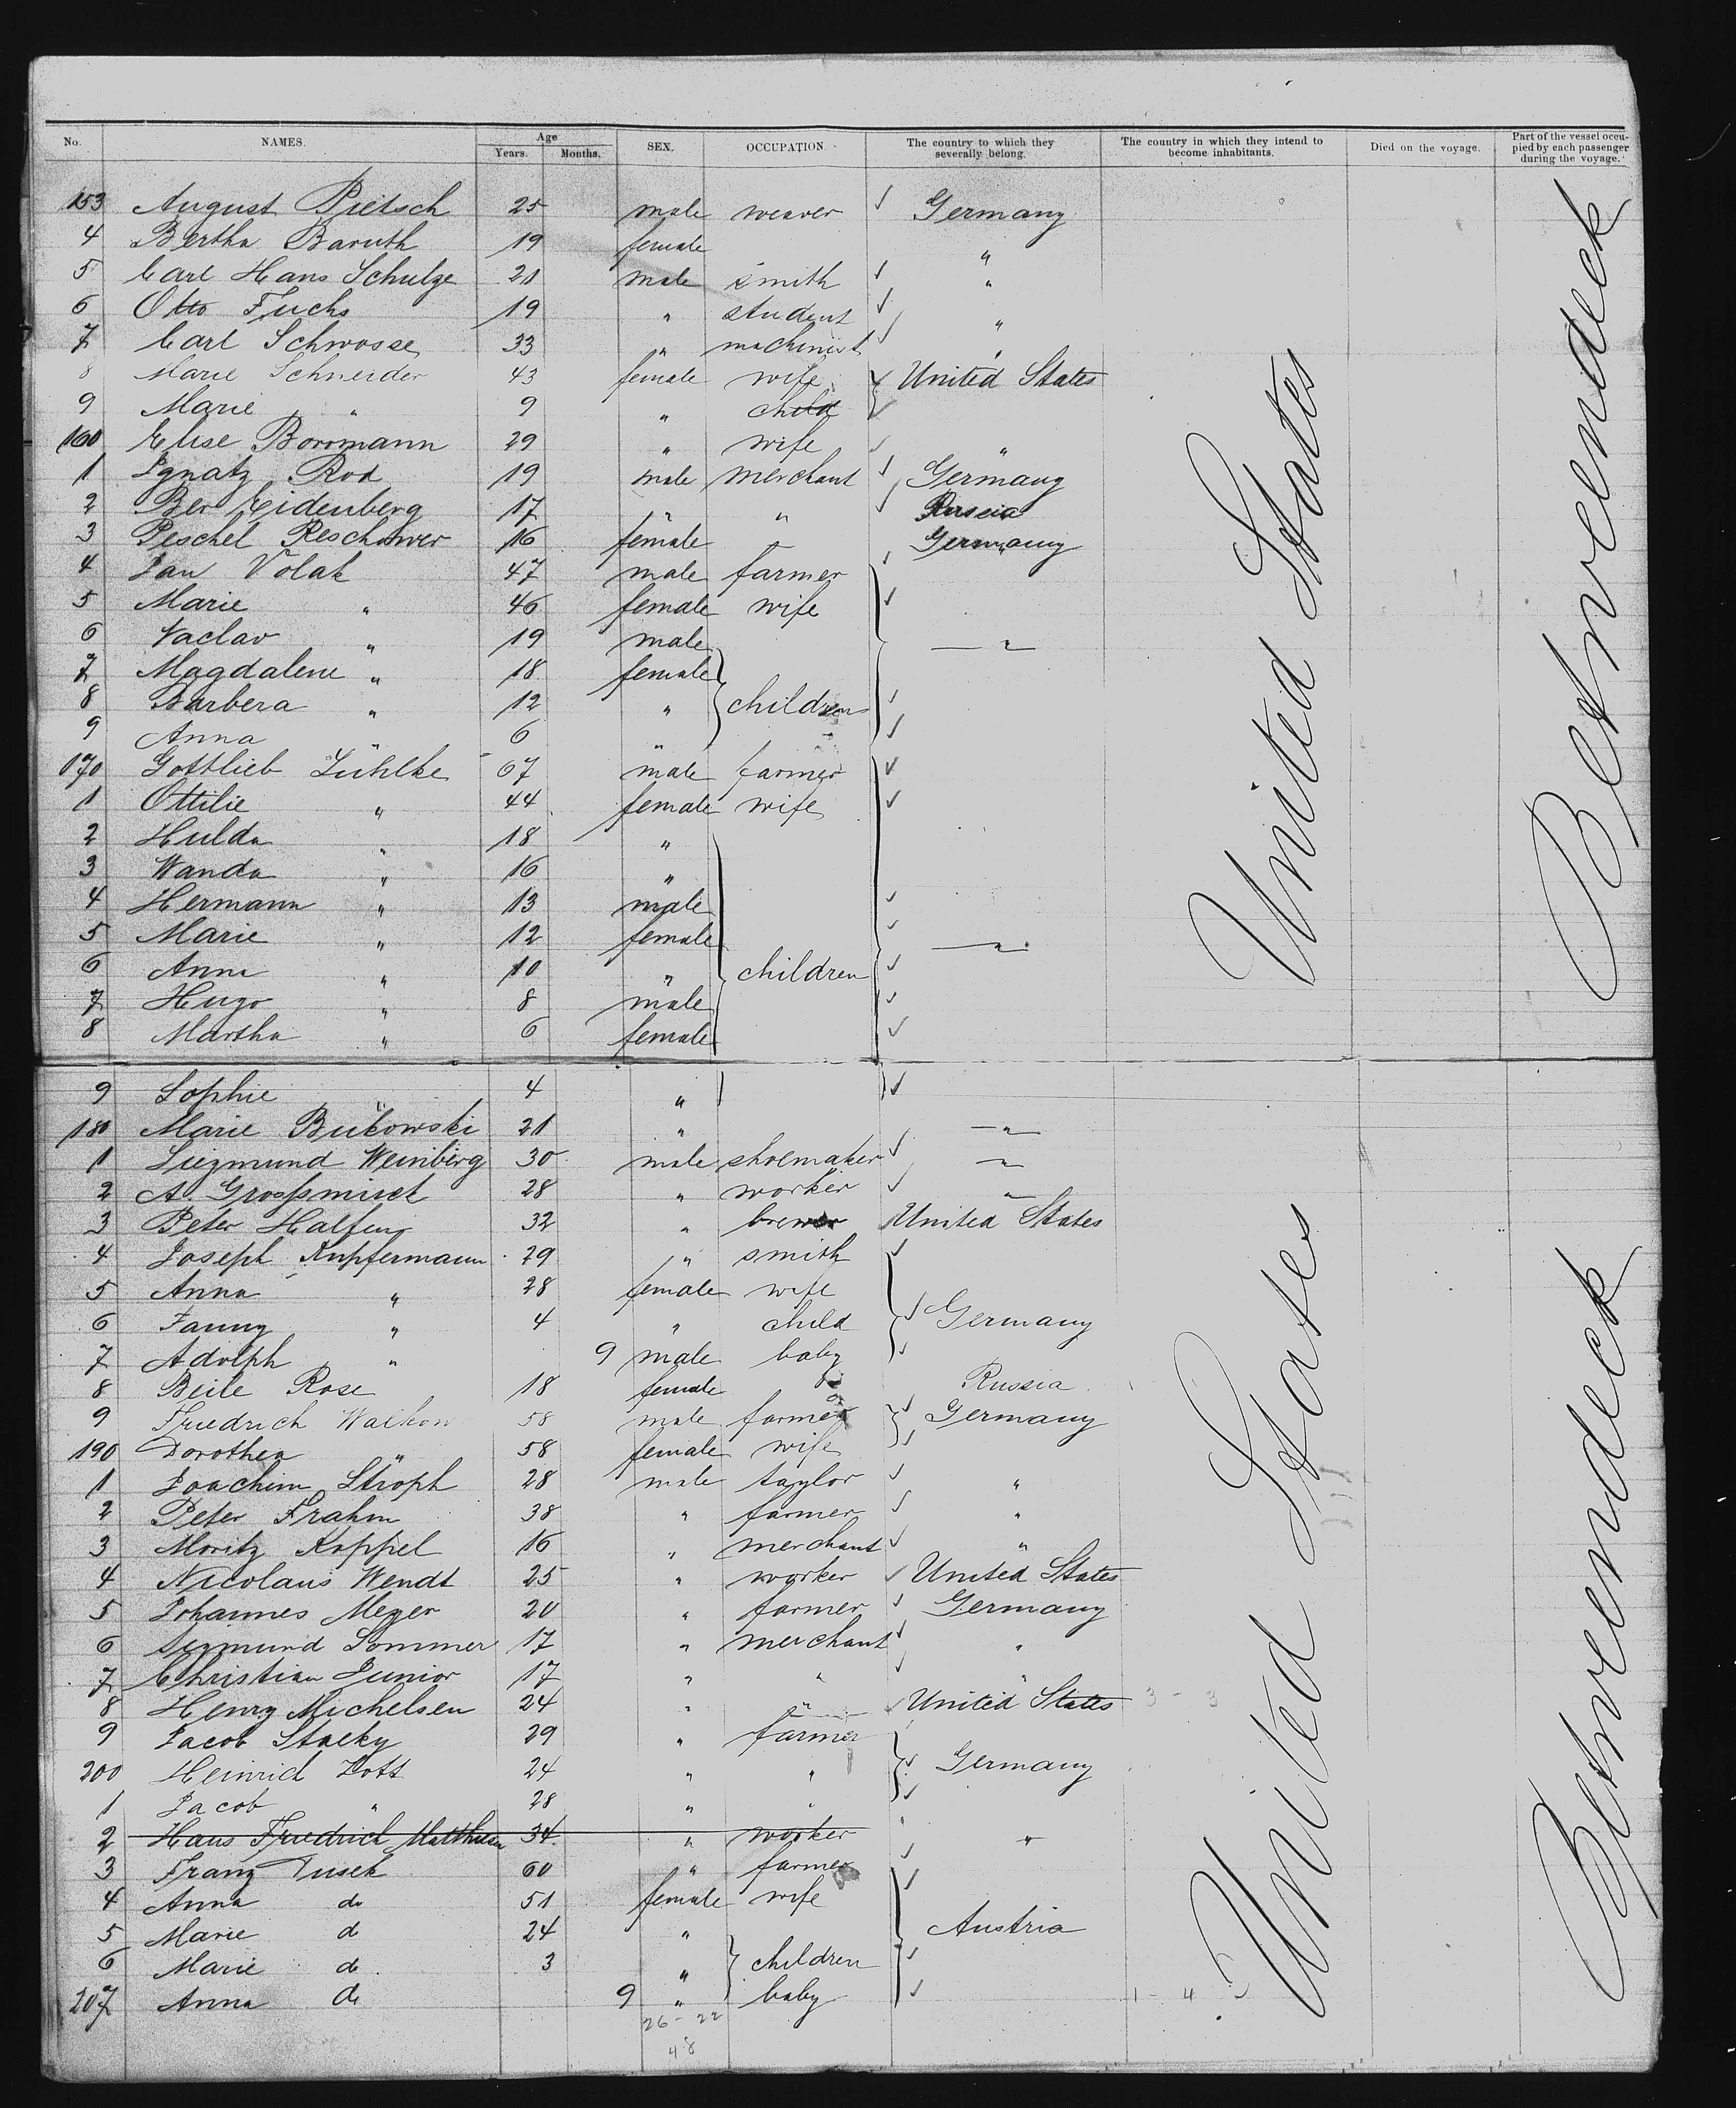 No. NAMES. Age Years. Months. SEX. OCCUPATION. The country to which they severally belong. The country in which they intend to become inhabitants. Died on the voyage. Part of the vessel occupied by each passenger during the voyage.
153 August Pietsch 25 male weaver ✓ Germany
4 Bertha Baruth 19 female "
5 Carl Hans Schulze 21 male smith ✓ "
6 Otto Fuchs 19 " student ✓ "
7 Carl Schwosse 33 " machinist ✓ "
8 Marie Schneider 43 female wife ✓ United States
9 Marie " 9 " child ✓
160 Elise Borrmann 29 " wife ✓ "
1 Ignatz Rod 19 male merchant ✓ Germany
2 Ber Eidenberg 17 " " ✓ Russia
3 Peschel Reschower 16 female " Germany
4 Jan Volak 47 male farmer ✓
5 Marie " 46 female wife ✓
6 Vaclav " 19 male — " —
7 Magdalene " 18 female
8 Barbera " 12 " children ✓
9 Anna " 6 " ✓
170 Gottlieb Lühlke 67 male farmer ✓
1 Ottilie " 44 female wife ✓
2 Hulda " 18 "
3 Wanda " 16 "
4 Hermann " 13 male ✓
5 Marie " 12 female ✓ — " —
6 Anna " 10 " children ✓
7 Hugo " 8 male ✓
8 Martha " 6 female ✓
9 Sophie " 4 " ✓
180 Marie Bukowski 21 " — " —
1 Siegmund Weinberg 30 male shoemaker ✓ — " —
2 A. Grossmisch 28 " worker ✓ — " —
3 Peter Halfen 32 " brewer United States
4 Joseph Kupfermann 29 " smith ✓
5 Anna " 28 female wife
6 Fanny " 4 " child ✓ Germany
7 Adolph " 9 male baby ✓
8 Beile Rose 18 female Russia
9 Friedrich Walkow 58 male farmer ✓ Germany
190 Dorothea " 58 female wife ✓
1 Joachim Stroph 28 male taylor ✓ "
2 Peter Frahm 38 " farmer ✓ "
3 Moritz Koppel 16 " merchant ✓ "
4 Nicolaus Wendt 25 " worker ✓ United States
5 Johannes Meyer 20 " farmer ✓ Germany
6 Sigmund Sommer 17 " merchant ✓ "
7 Christian Junior 17 " " ✓ "
8 Henry Michelsen 24 " " ✓ United States 3 - 3
9 Jacob Stucky 29 " farmer
200 Heinrich Zott 24 " " ✓ Germany
1 Jacob " 28 " " ✓
2 Hans Friedrich Matthiesen 34 " worker "
3 Franz Dusek 60 " farmer ✓
4 Anna do 51 female wife ✓
5 Marie do 24 " Austria
6 Marie do 3 " children ✓
207 Anna do 9 " baby ✓ 1 - 4
26 - 22
48
United States
United States
Betweendeck
Betweendeck